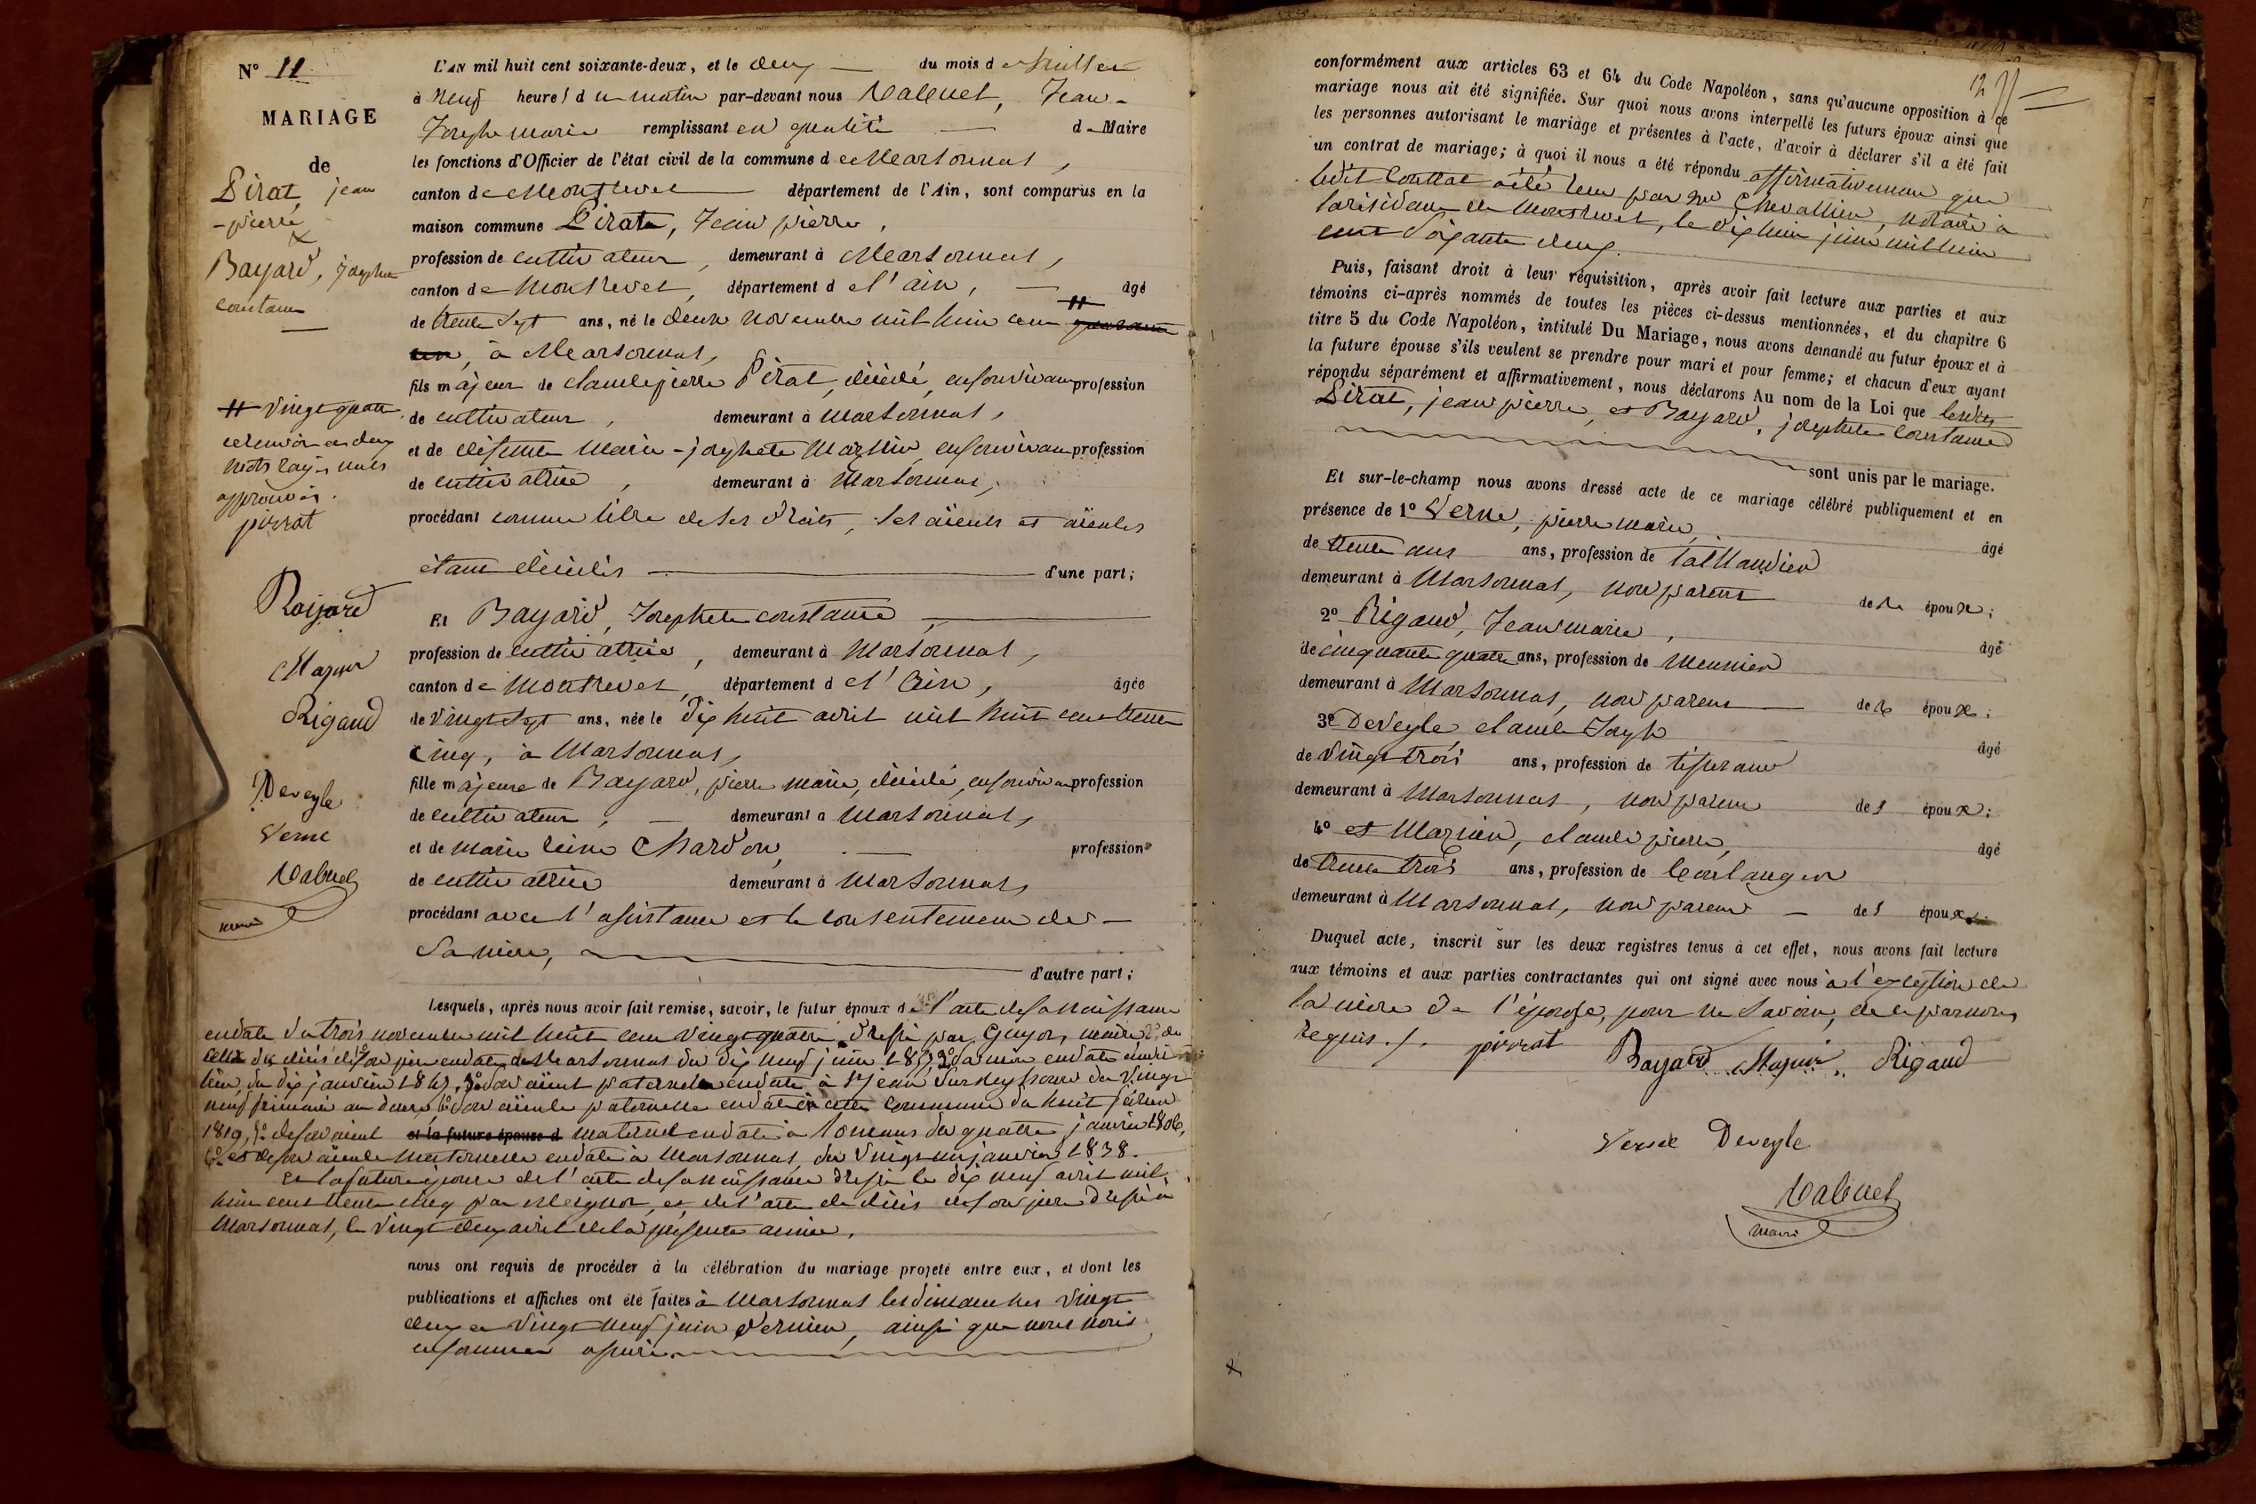 N° 11
MARIAGE
de
Pirat, jean
-pierre
&
Bayard, josephte
constance
L'AN mil huit cent soixante-deux, et le deux du mois de Juillet
à neuf heures du matin par-devant nous Valenet, Jean-
Joseph marie remplissant en qualité de Maire
les fonctions d'Officier de l'état civil de la commune de Marsonnas,
canton de Montrevel département de l'Ain, sont comparus en la
maison commune Pirat, Jean pierre,
profession de cultivateur, demeurant à Marsonnas,
canton de Montrevel, département de l'ain, âgé
de trente sept ans, né le deux novembre mil huit cent # quarante
un, à Marsonnas,
# vingt quatre
et renvoi en deux
mots rayés nuls
approuvés.
pirrat
Bayard
Mazuir
Rigaud
Deveyle
Verne
Valenet
maire
fils majeur de claude pierre Pirat, décédé, en son vivant profession
de cultivateur, demeurant à Marsonnas,
et de défunte Marie-josephete Mazuir, en son vivant profession
de cultivatrice, demeurant à Marsonnas,
procédant comme libre de ses droits, ses aïeuls et aïeules
étant décédés d'une part;
Et Bayard, Josephete constance,
profession de cultivatrice, demeurant à Marsonnas,
canton de Montrevel, département de l'Ain, âgée
de vingt sept ans, née le dix huit avril mil huit cent trente
cinq, à Marsonnas,
fille majeure de Bayard, pierre marie, décédé, en son vivant profession
de cultivateur, demeurant à Marsonnas,
et de Marie reine Chardon, profession
de cultivatrice demeurant à Marsonnas,
procédant avec l'assistance et le consentement de
sa mère, d'autre part;
Lesquels, après nous avoir fait remise, savoir, le futur époux de l'acte de sa naissance
en date du trois novembre mil huit cent vingt quatre dressé par Guyon, maire 2° de
celui du décès de son père en date de Marsonnas du dix neuf juin
lieu, du dix janvier aïeul paternel en date à St jean sur Reyssouze du vingt
neuf frimaire an douze aïeule paternelle en date en cette commune du huit
1819, 5° de son aïeul et la future épouse d maternel en date à du quatre janvier 1806,
6° et de son aïeule maternelle en date à Marsonnas du vingt un janvier 1838.
Et la future épouse de l'acte de sa naissance dressé le dix neuf avril mil
huit cent trente cinq par et de l'acte de décès de son père dressé à
Marsonnas, le vingt deux avril de la présente année,
nous ont requis de procéder à la célébration du mariage projeté entre eux, et dont les
publications et affiches ont été faites à Marsonnas les dimanches vingt
deux et vingt neuf juin dernier, ainsi que nous nous
en sommes assuré
conformément aux articles 63 et 64 du Code Napoléon, sans qu'aucune opposition à ce
mariage nous ait été signifiée. Sur quoi nous avons interpellé les futurs époux ainsi que
les personnes autorisant le mariage et présentes à l'acte, d'avoir à déclarer s'il a été fait
un contrat de mariage; à quoi il nous a été répondu affirmativement que
ledit contrat a été reçu par Me Chevallier, notaire à
la résidence de Montrevel, le dix huit juin mil huit
cent soixante deux.
Puis, faisant droit à leur réquisition, après avoir fait lecture aux parties et aux
témoins ci-après nommés de toutes les pièces ci-dessus mentionnées, et du chapitre 6
titre 5 du Code Napoléon, intitulé Du Mariage, nous avons demandé au futur époux et à
la future épouse s'ils veulent se prendre pour mari et pour femme; et chacun d'eux ayant
répondu séparément et affirmativement, nous déclarons Au nom de la Loi que lesdits
Pirat, jean pierre, et Bayard, josephete constance
sont unis par le mariage.
Et sur-le-champ nous avons dressé acte de ce mariage célébré publiquement et en
présence de 1° Verne, pierre marie, âgé
de trente ans ans, profession de taillandier
demeurant à Marsonnas, non parent de l'époux;
2° Rigaud, Jean marie, âgé
de cinquante quatre ans, profession de Meunier
demeurant à Marsonnas, non parent époux;
3° Deveyle, claude Joseph âgé
de vingt trois ans, profession de tisserand
demeurant à Marsonnas, non parent des époux;
4° et Mazuir, claude pierre, âgé
de trente trois ans, profession de boulanger
demeurant à Marsonnas, non parent des époux.
Duquel acte, inscrit sur les deux registres tenus à cet effet, nous avons fait lecture
aux témoins et aux parties contractantes qui ont signé avec nous à l'exception de
la mère de l'épouse, pour ne savoir, de ce par nous
requis./.
pirrat Bayard Mazuir Rigaud
Verne Deveyle
Valenet
maire